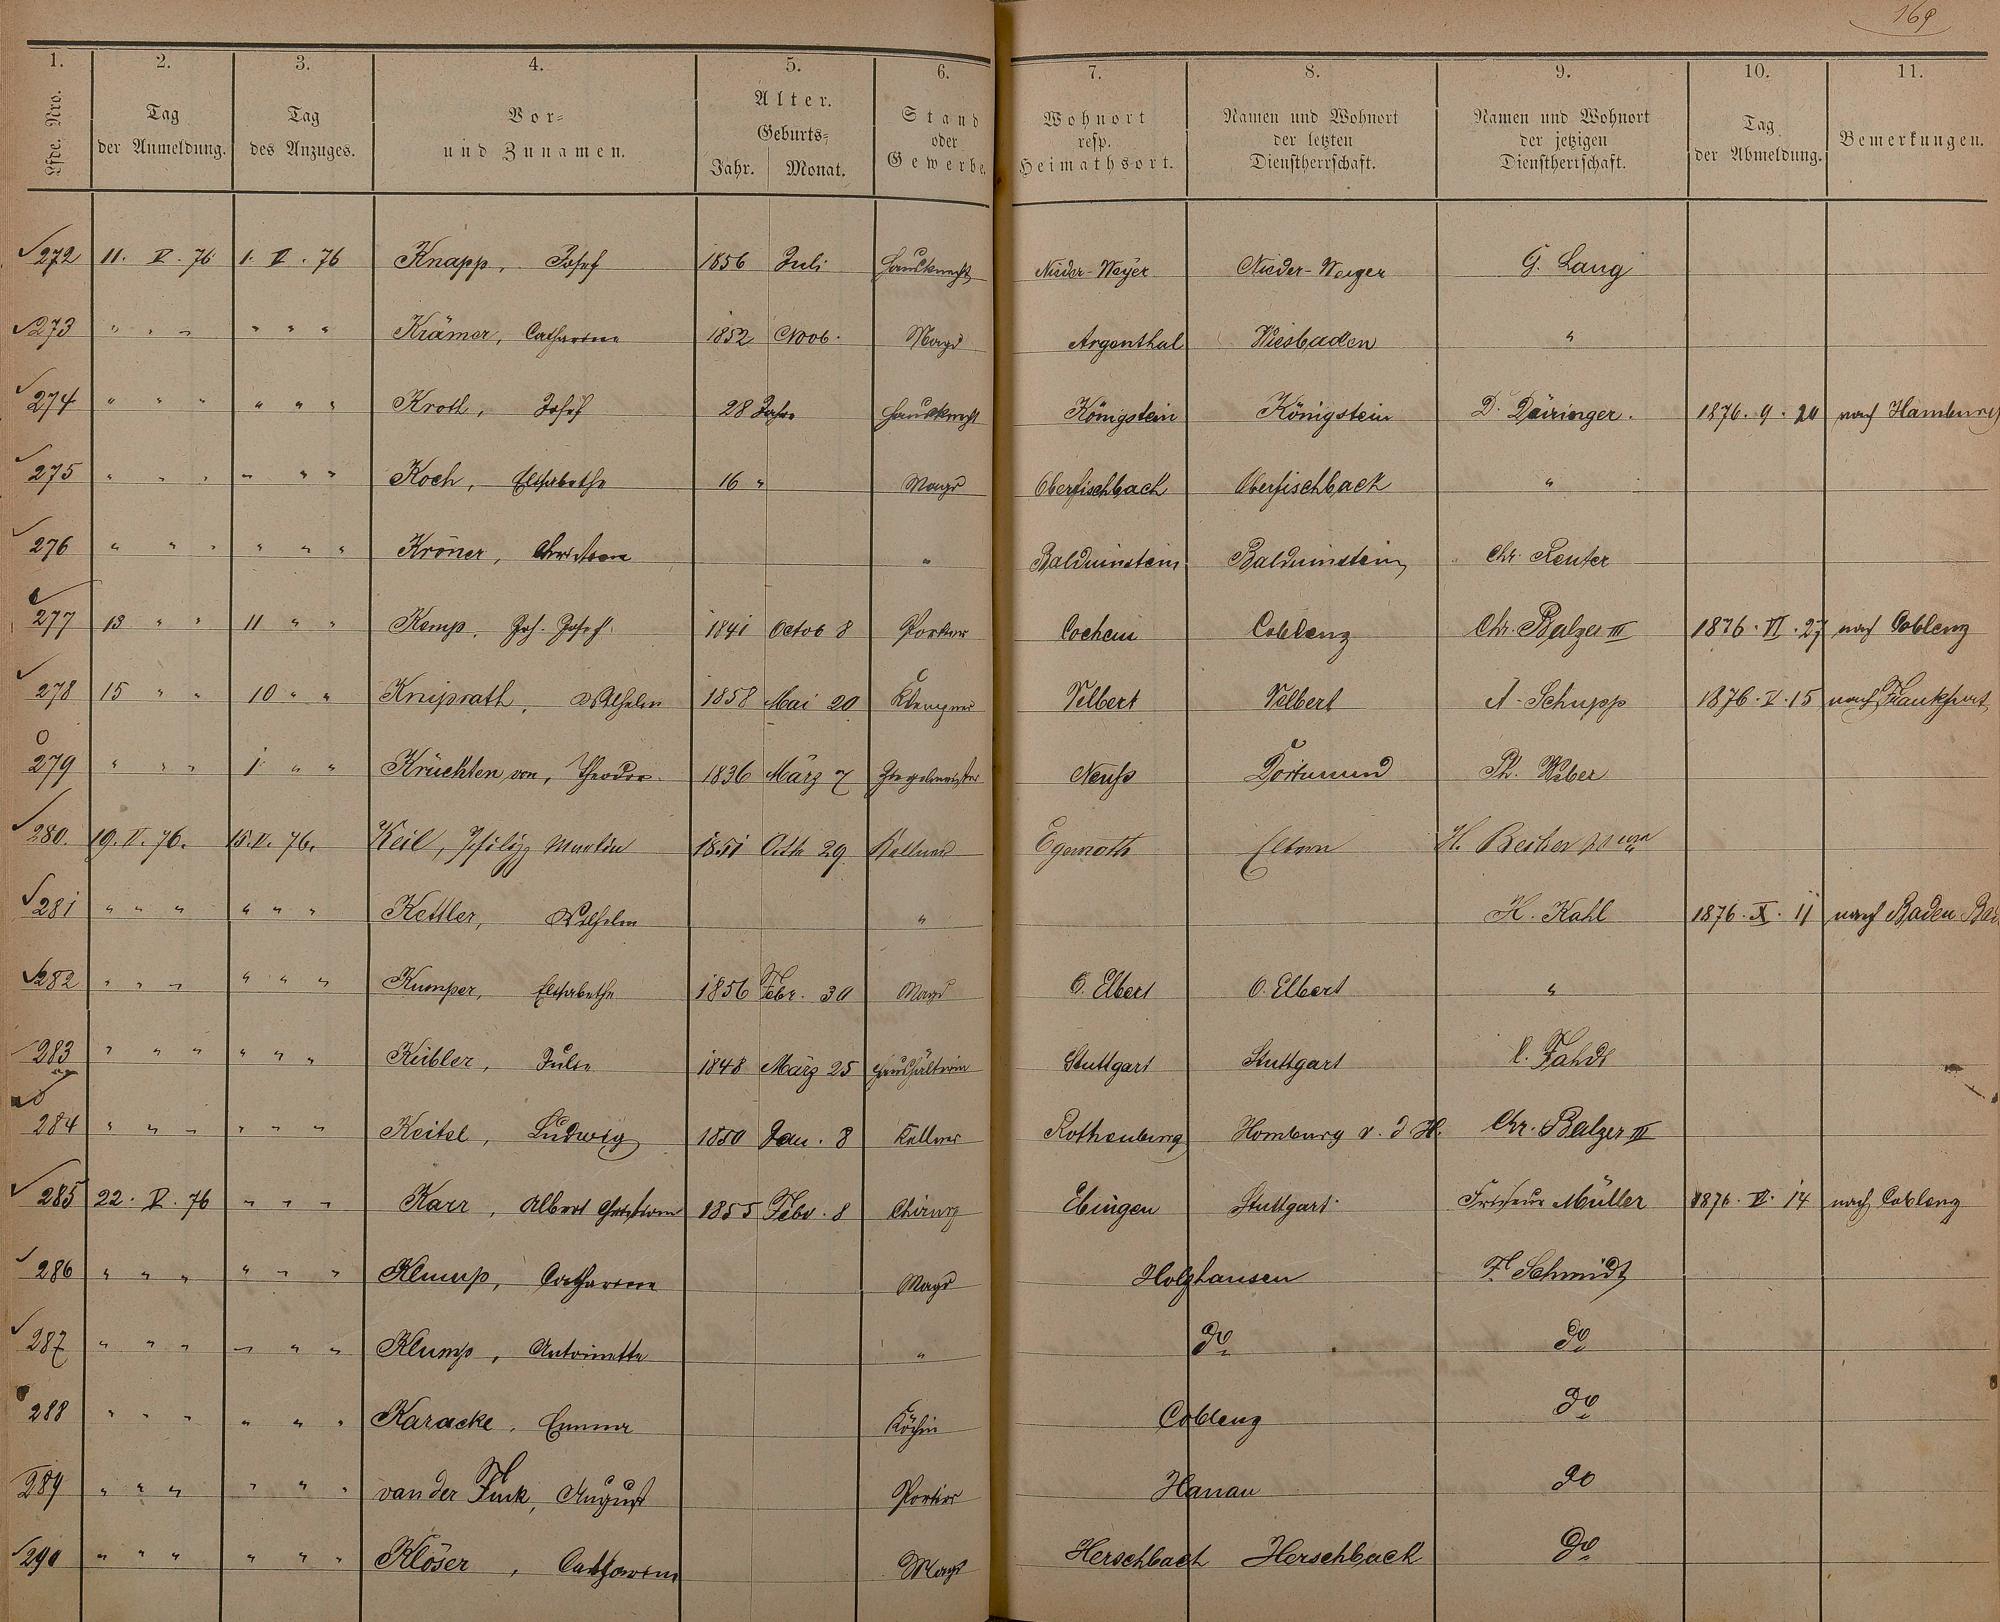 169
1. 2. 3. 4. 5. 6. 7. 8. 9. 10. 11.
Lfde. Nro. Tag der Anmeldung. Tag des Anzuges. Vor- und Zunamen. Alter. Geburts- Jahr. Monat. Stand oder Gewerbe. Wohnort resp. Heimathsort. Namen und Wohnort der letzten Dienstherrschaft. Namen und Wohnort der jetzigen Dienstherrschaft. Tag der Abmeldung. Bemerkungen.
272 11. V. 76 1. V. 76 Knapp, Josef 1856 Juli Hausknecht Nieder-Weyer Nieder-Weyer G. Lang
273 " " " " " " Krämer, Catharina 1852 Novb. Magd Argenthal Wiesbaden "
274 " " " " " " Kroth, Josef 28 Jahre Hausknecht Königstein Königstein D. Döringer. 1876. 9. 20 nach Hamburg
275 " " " " " " Koch, Elisabethe 16 " Magd Oberfischbach Oberfischbach "
276 " " " " " " Kröner, Christiane " Balduinstein Balduinstein Chr. Reuter
277 13 " " 11 " " Kemp, Joh. Josef 1841 Octob 8 Portier Cochem Coblenz Chr. Balzer III 1876. VI. 27 nach Coblenz
278 15 " " 10 " " Kniprath, Wilhelm 1858 Mai 20 Klempner Velbert Velbert A. Schupp 1876. V. 15 nach Frankfurt
279 " " " 1 " " Krüchten von, Theodor. 1836 März 7 Ziegelmeister Neuss Dortmund Ph. Weber
280. 19. V. 76. 15. V. 76. Keil, Philipp Martin 1851 Octb 29 Kellner Egenroth Eltern H. Becker
281 " " " " " " Kettler, Wilhelm " H. Kahl 1876. X. 11 nach Baden Bad
282 " " " " " " Kumper, Elisabethe 1856 Febr. 30 Magd O. Elbert O. Elbert "
283 " " " " " " Keibler, Julie 1848 März 25 Haushälterin Stuttgart Stuttgart C. Fahdt
284 " " " " " " Keitel, Ludwig 1850 Jan. 8 Kellner Rothenburg Homburg v. d H. Chr. Balzer III
285 22. V. 76 " " " Karr, Albert Christian 1855 Febr. 8 Chirurg Ebingen Stuttgart Friseur Müller 1876. VI. 14 nach Coblenz
286 " " " " " " Klump, Catharina Magd Holzhausen F. Schmidt
287 " " " " " " Klump, Antoinette " do do
288 " " " " " " Karacke, Emma Köchin Coblenz do
289 " " " " " " van der Fink, August Portier Hanau do
290 " " " " " " Klöser, Catharina Magd Herschbach Herschbach do